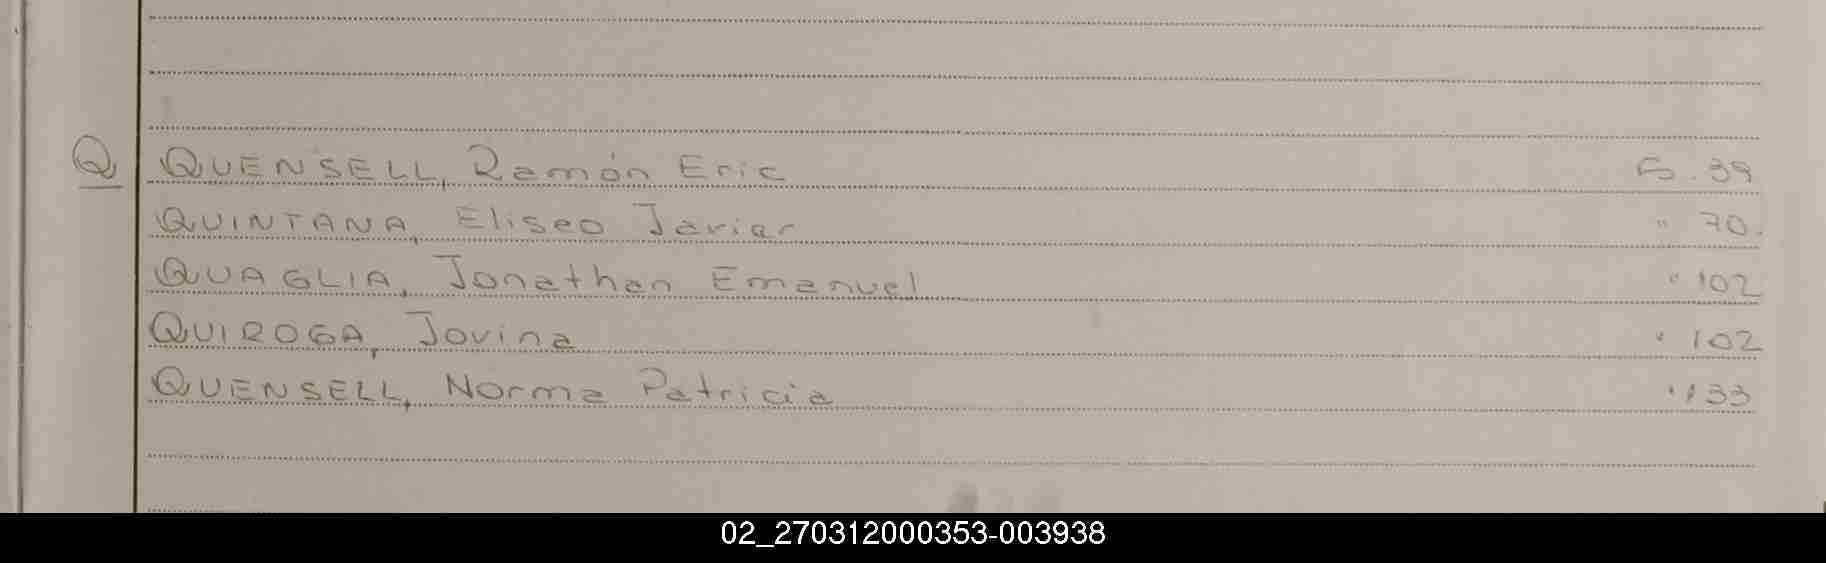 Q QUENSELL, Ramón Eric Fs. 39
QUINTANA, Eliseo Javier " 70.
QUAGLIA, Jonathan Emanuel " 102
QUIROGA, Jovina " 102
QUENSELL, Norma Patricia " 133
02_270312000353-003938